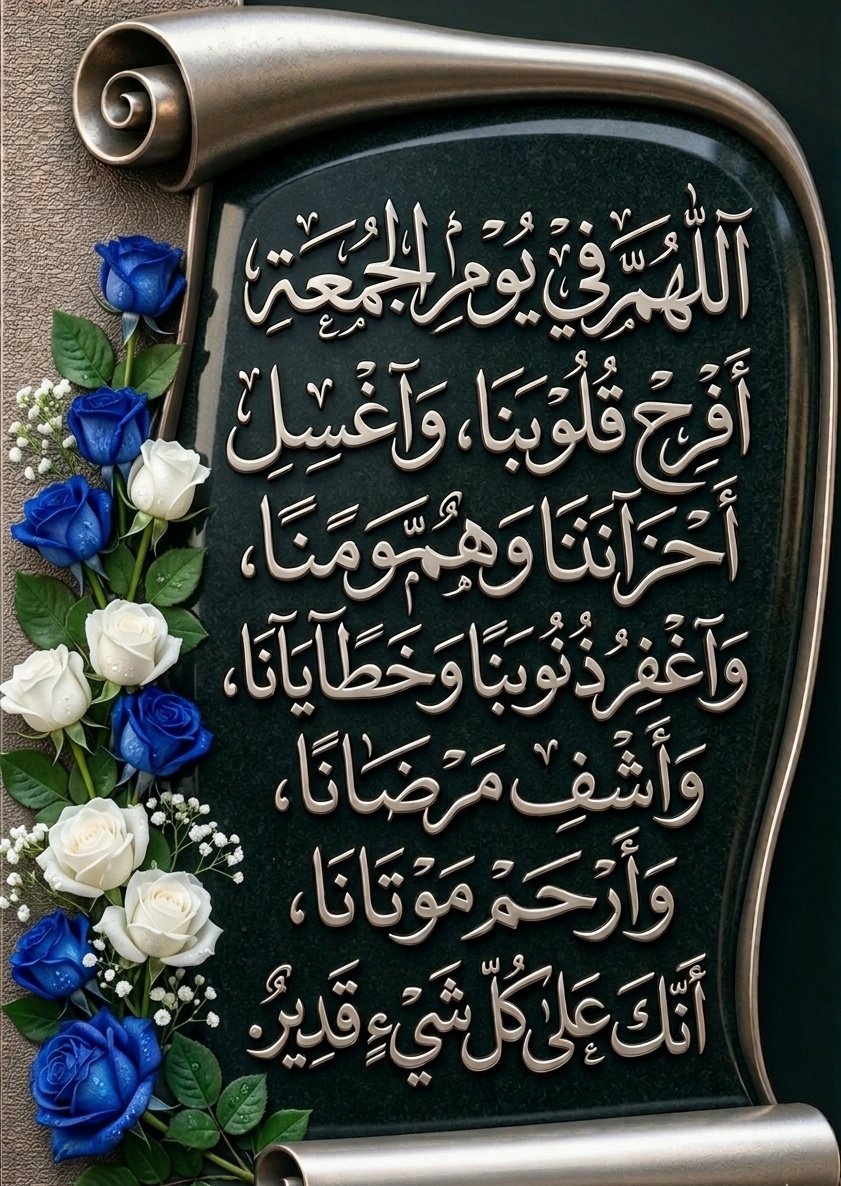 آللَّهُمَّ فِي يُوْمِ الجُمُعَةِ
أَفْرِحْ قُلُوْبَنَا، وَآغْسِلِ
أَحْزَآنَنَا وَهُمُّوَمَنًا،
وَآغْفِرُ ذُنُوبَنًا وَخَطًآيَآنَا،
وَأَشْفِ مَرْضَانًا،
وَأَرْحَمْ مَوْتَانَا،
أَنَّكَ عَلَى كُلِّ شَيْءٍ قَدِيرٌ.